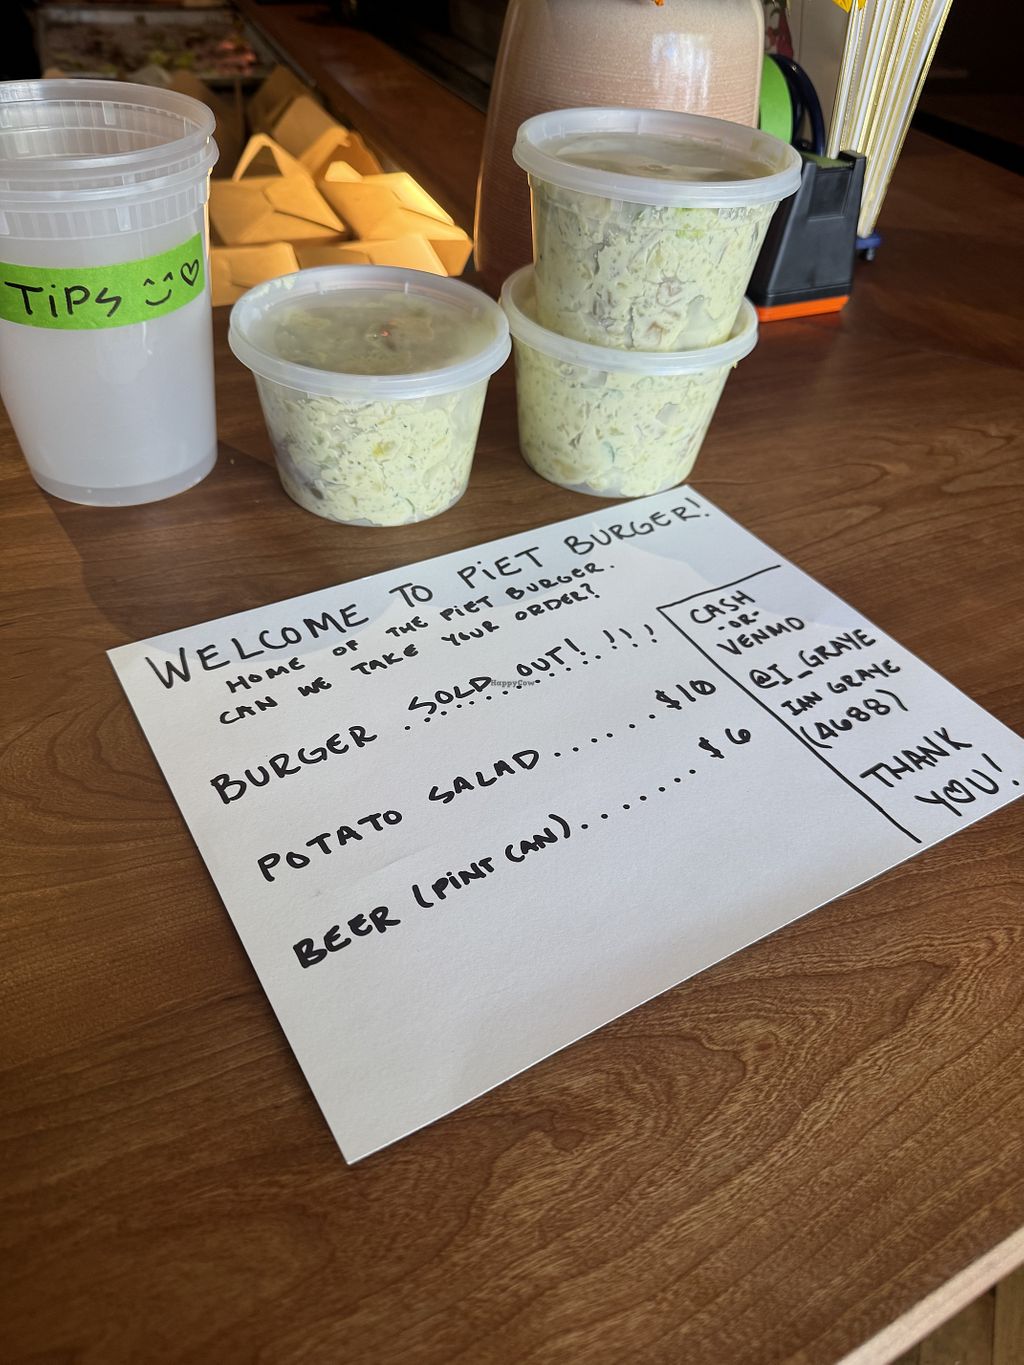 TiPS
WELCOME TO PiET BURGER!
HOME OF THE PiET BURGER.
CAN WE TAKE YOUR ORDER?
BURGER ..SOLD OUT!...!!!
POTATO SALAD ...... $10
BEER (PiNT CAN)....... $6
CASH
-OR-
VENMO
@I_GRAYE
IAN GRAYE
(4688)
THANK
YOU!
HappyCow